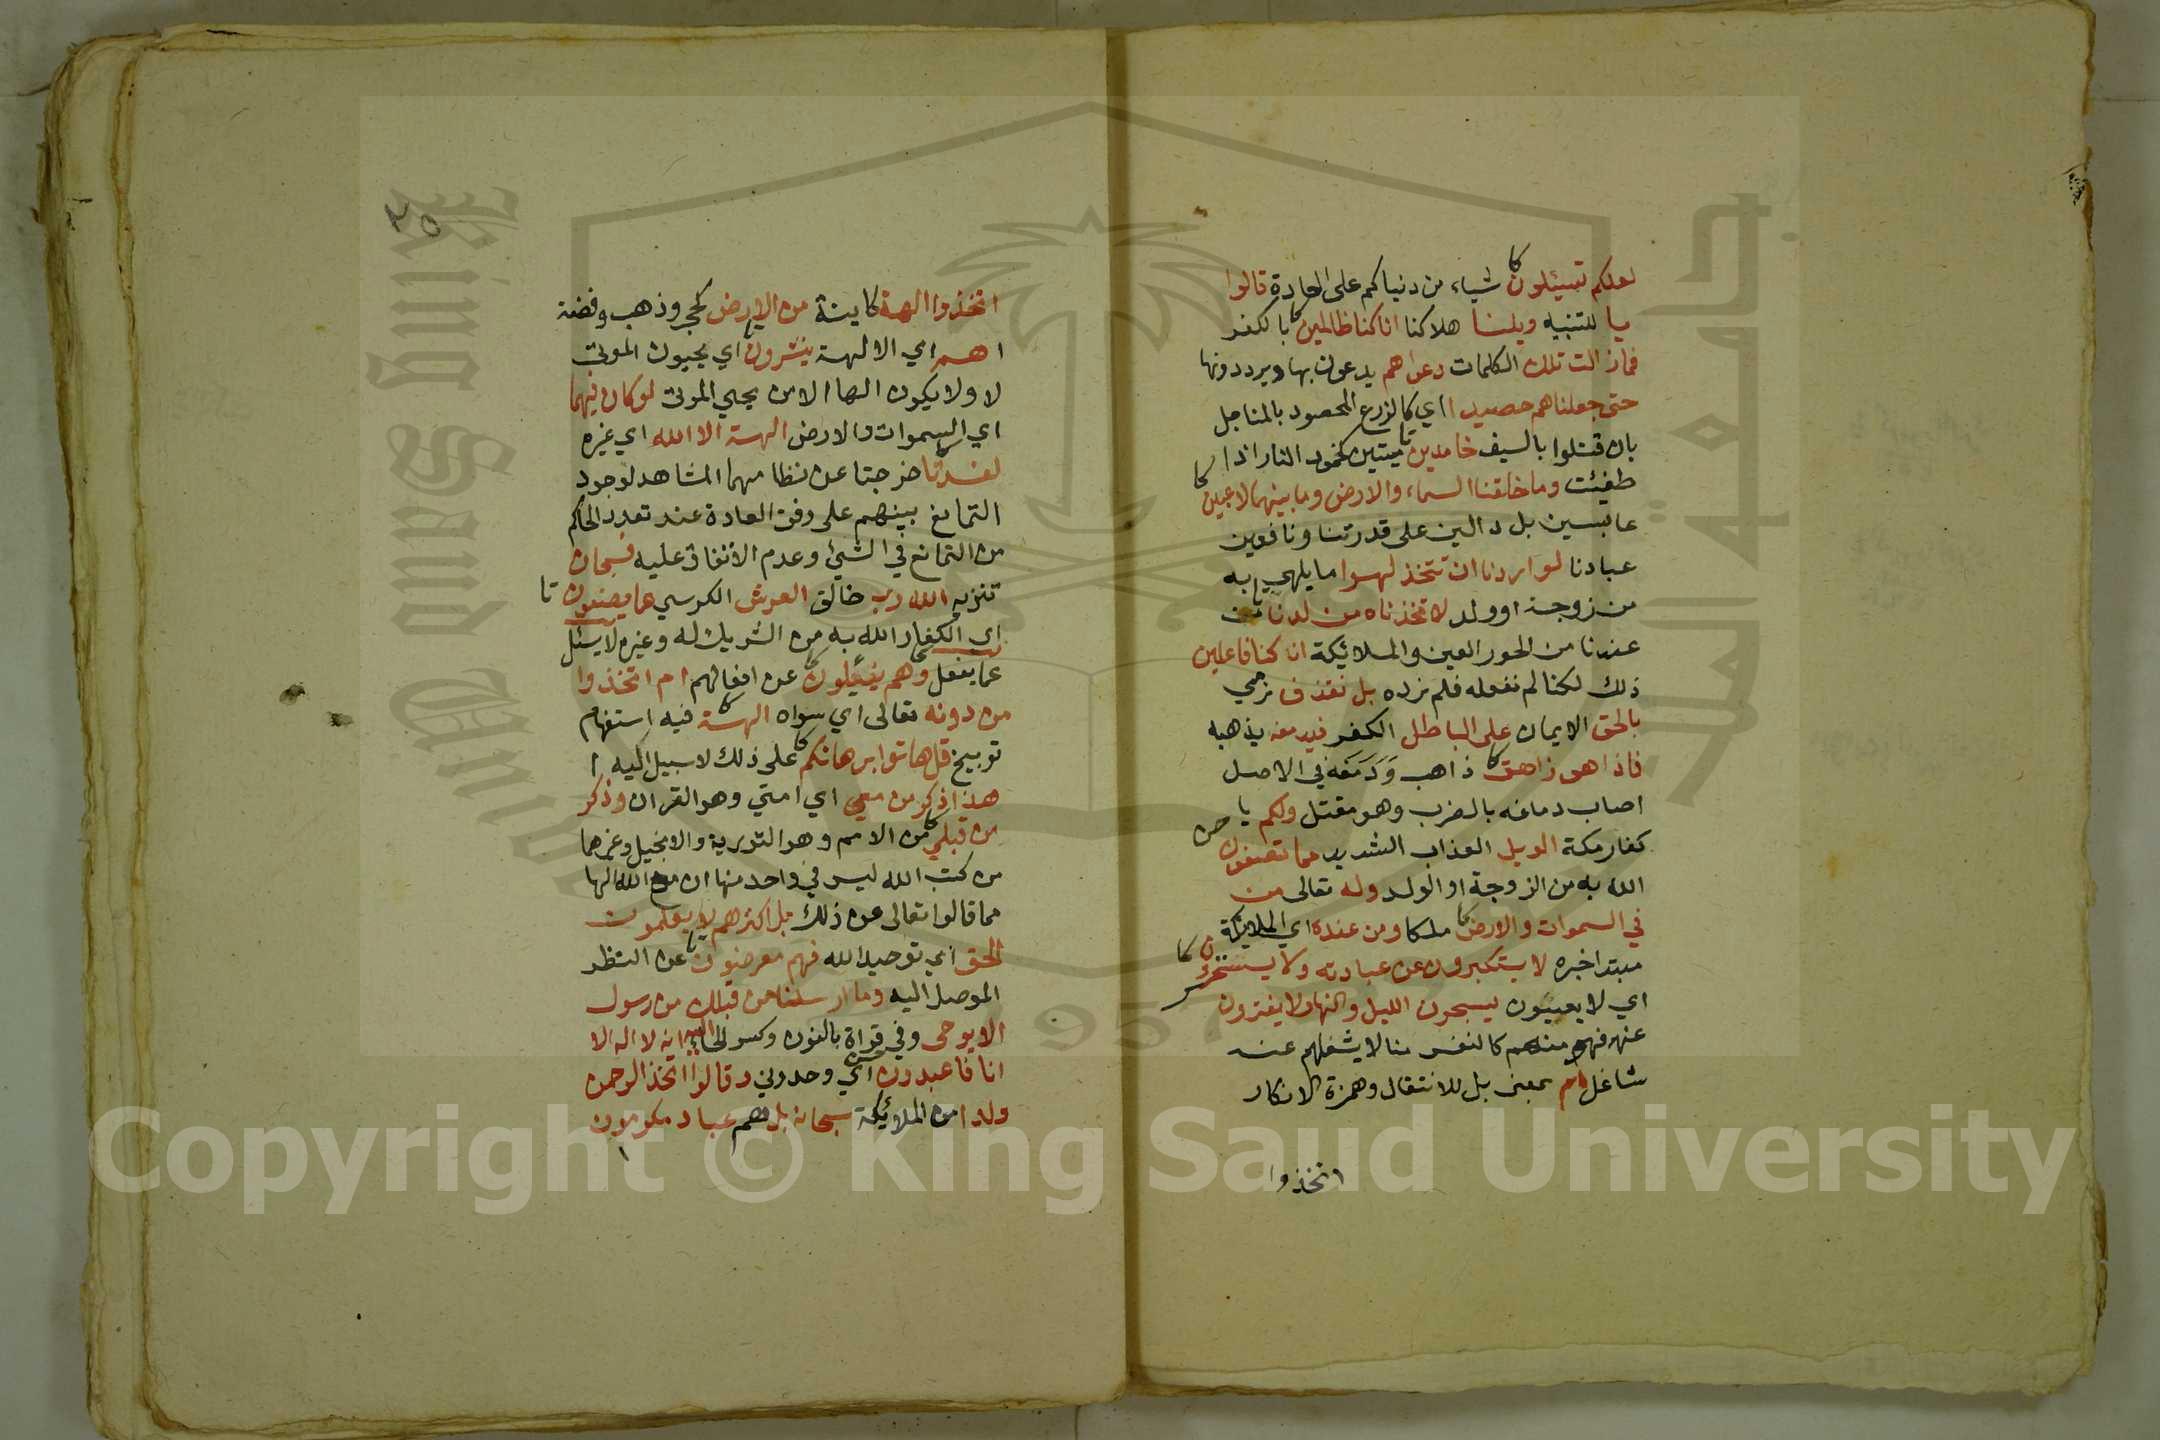 لعلكم تسيئلون شياء من دنياكم على العادة قالوا
يا للتنبيه ويلنا هلاكنا انا كنا ظالمين بالكفر
فما زالت تلك الكلمات دعواهم يدعون بها ويرددونها
حتى جعلناهم حصيدا اي كالزرع المحصود بالمناجل
بان قتلوا بالسيف خامدين ميتين كخمود النار اذا
طفيئت وما خلقنا السماء والارض وما بينهما لاعبين
عابسين بل دالين على قدرتنا ونافعين
عبادنا لو اردنا ان نتخذ لهوا ما يلهي به
من زوجة او ولد لاتخذناه من لدنا من
عندنا من الحور العين والملائيكة ان كنا فاعلين
ذلك لكنا لم نفعله فلم نرده بل نقذف نرمي
بالحق الايمان على الباطل الكفر فيدمغه يذهبه
فاذا هو زاهق ذاهب ودمغه في الاصل
اصاب دماغه بالضرب وهو مقتل ولكم يا
كفار مكة الويل العذاب الشديد مما تصفون
الله به من الزوجة او الولد وله تعالى من
في السموات والارض ملكا ومن عنده اي الملايئكة
مبتدا خبره لا يستكبرون عن عبادته ولا يستحسرون
اي لا يعييون يسبحون الليل والنهار لا يفترون
عنه فهو منهم كالنفس منا لا يشغلهم عنه
شاغل ام بمعنى بل للانتقال وهمزة الانكار
اتخذوا
٢٥
اتخذوا الهة كاينة من الارض كحجر وذهب وفضة
اهم اي الالهة ينشرون اي يحيون الموتى
لا ولا يكون الها الا من يحيي الموتى لو كان فيهما
اي السموات والارض الهة الا الله اي غيره
لفسدتا خرجتا عن نظامهما المشاهد لوجود
التمانع بينهم على وفق العادة عند تعدد الحاكم
من التمانع في الشيئ وعدم الاتفاق عليه فسبحان
تنزيه الله رب خالق العرش الكرسي عما يصفون
اي الكفار الله به من الشريك له وغيره لا يسئل
عما يفعل وهم يسئلون عن افعالهم ام اتخذوا
من دونه تعالى اي سواه الهة فيه استفهام
توبيخ قل هاتوا برهانكم على ذلك لا سبيل اليه
هذا ذكر من معي اي امتي وهو القران وذكر
من قبلي من الامم وهو التورية والانجيل وغيرهما
من كتب الله ليس في واحد منها ان مع الله الها
مما قالوا تعالى عن ذلك بل اكثرهم لا يعلمون
الحق اي توحيد الله فهم معرضون عن النظر
الموصل اليه وما ارسلنا من قبلك من رسول
الا يوحى وفي قراة بالنون وكسر الحا اليه انه لا اله الا
انا فاعبدون اي وحدوني وقالوا اتخذ الرحمن
ولدا من الملايئكة سبحانه بل هم عباد مكرمون
Copyright © King Saud University
King Saud University
جامعة الملك سعود
1957